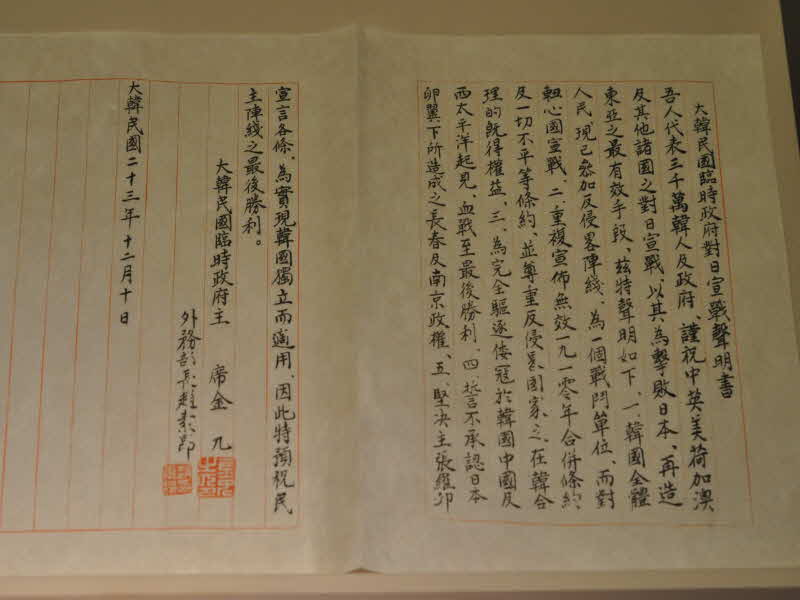 大韓民國臨時政府對日宣戰聲明書
吾人代表三千萬韓人及政府、謹祝中英美荷加澳
及其他諸國之對日宣戰、以其為擊敗日本、再造
東亞之最有效手段、茲特聲明如下、一、韓國全體
人民現已參加反侵畧陣綫、為一個戰鬥單位、而對
軸心國宣戰、二、重複宣佈無效一九一零年合併條約
及一切不平等條約、並尊重反侵畧國家之、在韓合
理的既得權益、三、為完全驅逐倭寇於韓國中國及
西太平洋起見、血戰至最後勝利、四、誓不承認日本
卵翼下所造成之長春及南京政權、五、堅決主張羅卯
宣言各條、為實現韓國獨立而適用、因此特預祝民
主陣綫之最後勝利。
大韓民國臨時政府主 席金 九
外務部長趙素昂
大韓民國二十三年十二月十日